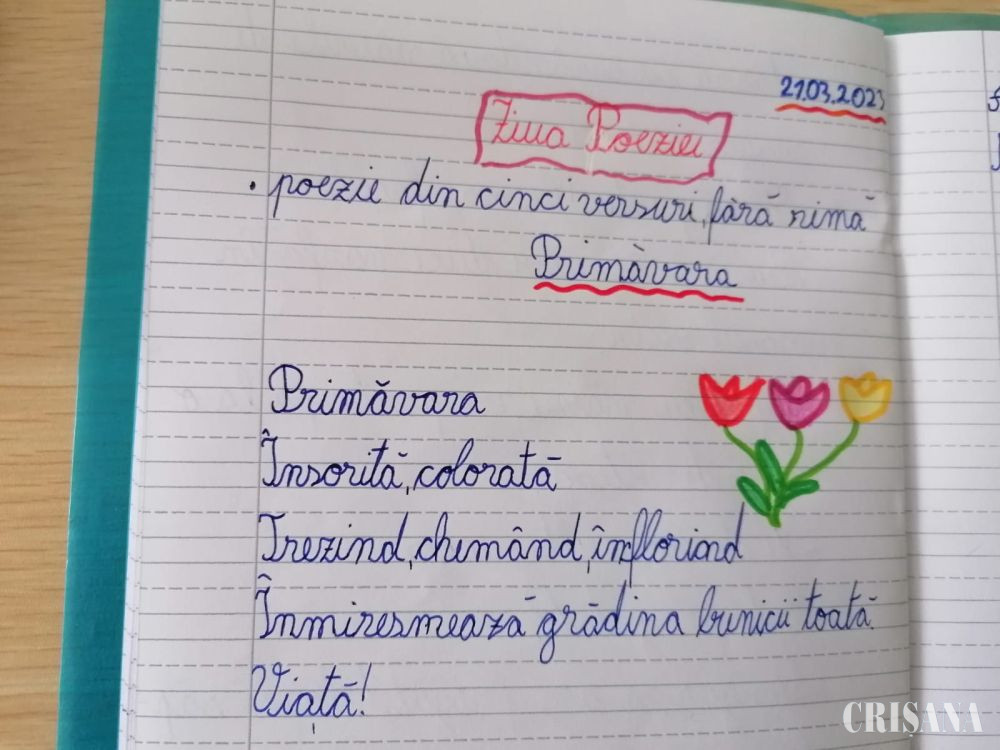 21.03.2023
Ziua Poeziei
• poezie din cinci versuri, fără rimă
Primăvara
Primăvara
Însorită, colorată
Trezind, chemând, înflorind
Înmiresmează grădina bunicii toată.
Viață!
CRIȘANA